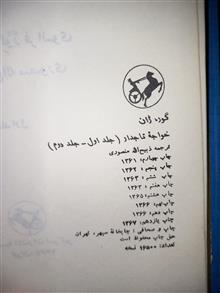 گوره ژان
خواجهٔ تاجدار (جلد اول - جلد دوم)
ترجمه ذبیح‌الله منصوری
چاپ چهارم: ۱۳۶۱
چاپ پنجم: ۱۳۶۲
چاپ ششم: ۱۳۶۳
چاپ هفتم: ۱۳۶۴
چاپ هشتم: ۱۳۶۵
چاپ نهم: ۱۳۶۶
چاپ دهم: ۱۳۶۶
چاپ یازدهم: ۱۳۶۷
چاپ و صحافی: چاپخانهٔ سپهر، تهران
حق چاپ محفوظ است
تعداد: ۱۶۵۰۰ نسخه